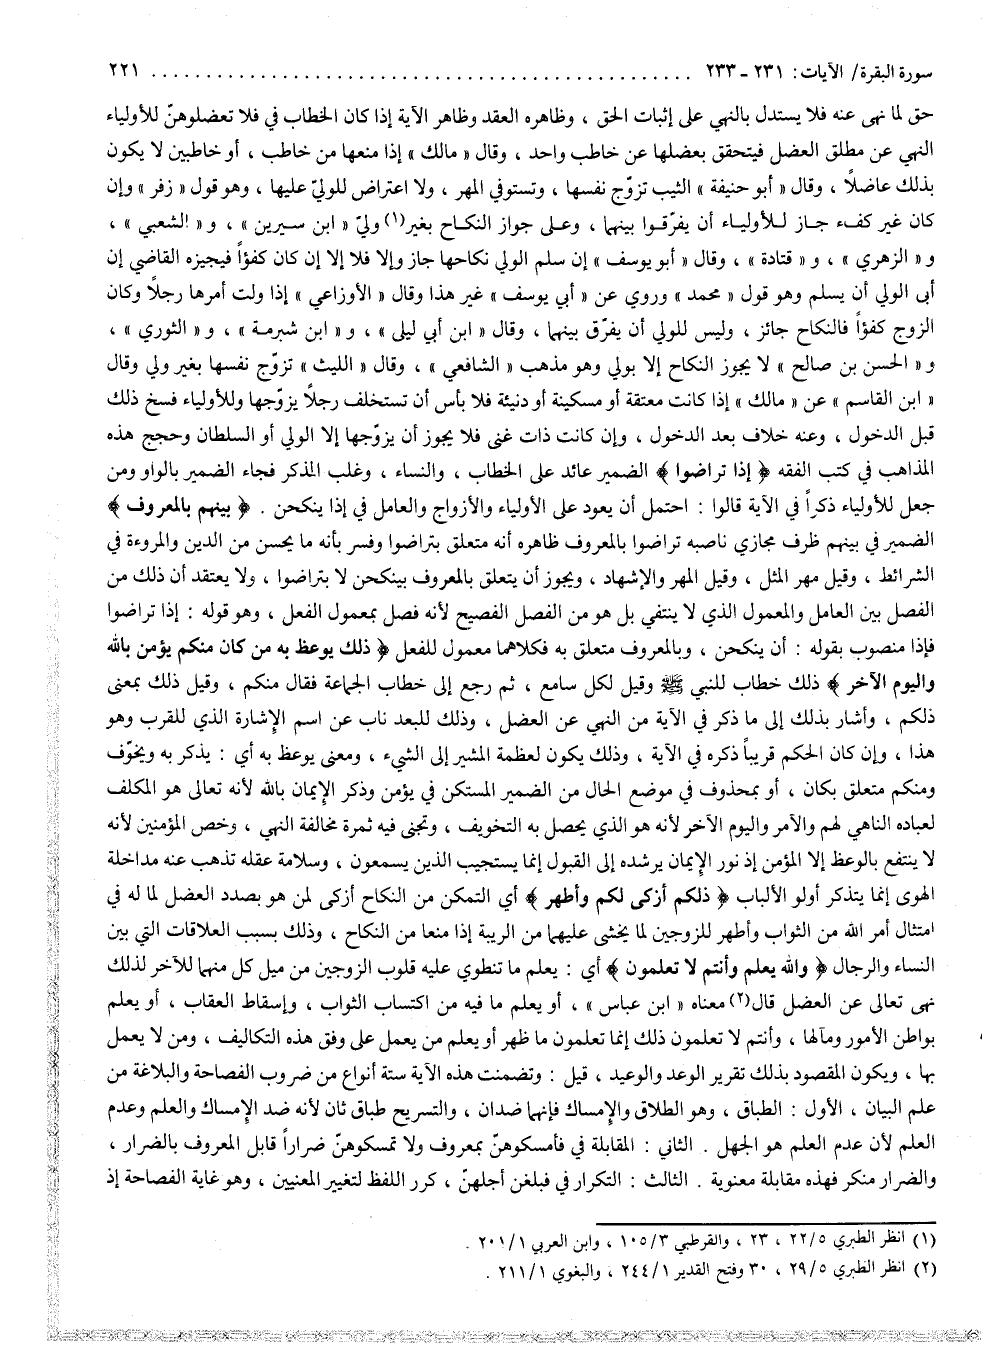 سورة البقرة/ الآيات: ٢٣١ ـ ٢٣٣ ........................................................ ٢٢١
حق لما نهى عنه فلا يستدل بالنهي على إثبات الحق ، وظاهره العقد وظاهر الآية إذا كان الخطاب في فلا تعضلوهنّ للأولياء
النهي عن مطلق العضل فيتحقق بعضلها عن خاطب واحد ، وقال « مالك » إذا منعها من خاطب ، أو خاطبين لا يكون
بذلك عاضلاً ، وقال « أبو حنيفة » الثيب تزوّج نفسها ، وتستوفي المهر ، ولا اعتراض للوليّ عليها ، وهو قول « زفر » وإن
كان غير كفء جاز للأولياء أن يفرّقوا بينهما ، وعلى جواز النكاح بغير(١) وليّ « ابن سيرين » ، و « الشعبي » ،
و « الزهري » ، و « قتادة » ، وقال « أبو يوسف » إن سلم الولي نكاحها جاز وإلا فلا إلا إن كان كفؤاً فيجيزه القاضي إن
أبى الولي أن يسلم وهو قول « محمد » وروي عن « أبي يوسف » غير هذا وقال « الأوزاعي » إذا ولت أمرها رجلاً وكان
الزوج كفؤاً فالنكاح جائز ، وليس للولي أن يفرّق بينهما ، وقال « ابن أبي ليلى » ، و « ابن شبرمة » ، و « الثوري » ،
و « الحسن بن صالح » لا يجوز النكاح إلا بولي وهو مذهب « الشافعي » ، وقال « الليث » تزوّج نفسها بغير ولي وقال
« ابن القاسم » عن « مالك » إذا كانت معتقة أو مسكينة أو دنيئة فلا بأس أن تستخلف رجلاً يزوّجها وللأولياء فسخ ذلك
قبل الدخول ، وعنه خلاف بعد الدخول ، وإن كانت ذات غنى فلا يجوز أن يزوّجها إلا الولي أو السلطان وحجج هذه
المذاهب في كتب الفقه ﴿ إذا تراضوا ﴾ الضمير عائد على الخطاب ، والنساء ، وغلب المذكر فجاء الضمير بالواو ومن
جعل للأولياء ذكراً في الآية قالوا : احتمل أن يعود على الأولياء والأزواج والعامل في إذا ينكحن . ﴿ بينهم بالمعروف ﴾
الضمير في بينهم ظرف مجازي ناصبه تراضوا بالمعروف ظاهره أنه متعلق بتراضوا وفسر بأنه ما يحسن من الدين والمروءة في
الشرائط ، وقيل مهر المثل ، وقيل المهر والإشهاد ، ويجوز أن يتعلق بالمعروف بينكحن لا بتراضوا ، ولا يعتقد أن ذلك من
الفصل بين العامل والمعمول الذي لا ينتفي بل هو من الفصل الفصيح لأنه فصل بمعمول الفعل ، وهو قوله : إذا تراضوا
فإذا منصوب بقوله : أن ينكحن ، وبالمعروف متعلق به فكلاهما معمول للفعل ﴿ ذلك يوعظ به من كان منكم يؤمن بالله
واليوم الآخر ﴾ ذلك خطاب للنبي ﷺ وقيل لكل سامع ، ثم رجع إلى خطاب الجماعة فقال منكم ، وقيل ذلك بمعنى
ذلكم ، وأشار بذلك إلى ما ذكر في الآية من النهي عن العضل ، وذلك للبعد ناب عن اسم الإشارة الذي للقرب وهو
هذا ، وإن كان الحكم قريباً ذكره في الآية ، وذلك يكون لعظمة المشير إلى الشيء ، ومعنى يوعظ به أي : يذكر به ويخوّف
ومنكم متعلق بكان ، أو بمحذوف في موضع الحال من الضمير المستكن في يؤمن وذكر الإيمان بالله لأنه تعالى هو المكلف
لعباده الناهي لهم والآمر واليوم الآخر لأنه هو الذي يحصل به التخويف ، وتجنى فيه ثمرة مخالفة النهي ، وخص المؤمنين لأنه
لا ينتفع بالوعظ إلا المؤمن إذ نور الإيمان يرشده إلى القبول إنما يستجيب الذين يسمعون ، وسلامة عقله تذهب عنه مداخلة
الهوى إنما يتذكر أولو الألباب ﴿ ذلكم أزكى لكم وأطهر ﴾ أي التمكن من النكاح أزكى لمن هو بصدد العضل لما له في
امتثال أمر الله من الثواب وأطهر للزوجين لما يخشى عليهما من الريبة إذا منعا من النكاح ، وذلك بسبب العلاقات التي بين
النساء والرجال ﴿ والله يعلم وأنتم لا تعلمون ﴾ أي : يعلم ما تنطوي عليه قلوب الزوجين من ميل كل منهما للآخر لذلك
نهى تعالى عن العضل قال(٢) معناه « ابن عباس » ، أو يعلم ما فيه من اكتساب الثواب ، وإسقاط العقاب ، أو يعلم
بواطن الأمور ومآلها ، وأنتم لا تعلمون ذلك إنما تعلمون ما ظهر أو يعلم من يعمل على وفق هذه التكاليف ، ومن لا يعمل
بها ، ويكون المقصود بذلك تقرير الوعد والوعيد ، قيل : وتضمنت هذه الآية ستة أنواع من ضروب الفصاحة والبلاغة من
علم البيان ، الأول : الطباق ، وهو الطلاق والإمساك فإنهما ضدان ، والتسريح طباق ثان لأنه ضد الإمساك والعلم وعدم
العلم لأن عدم العلم هو الجهل . الثاني : المقابلة في فأمسكوهنّ بمعروف ولا تمسكوهنّ ضراراً قابل المعروف بالضرار ،
والضرار منكر فهذه مقابلة معنوية . الثالث : التكرار في فبلغن أجلهنّ ، كرر اللفظ لتغيير المعنيين ، وهو غاية الفصاحة إذ
(١) انظر الطبري ٢٢/٥ ، ٢٣ ، والقرطبي ١٠٥/٣ ، وابن العربي ٢٠١/١ .
(٢) انظر الطبري ٢٩/٥ ، ٣٠ وفتح القدير ٢٤٤/١ ، والبغوي ٢١١/١ .